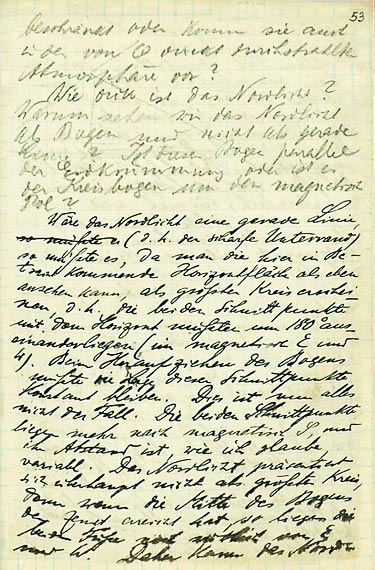 53
beschränkt oder kommt sie auch
in der von ☉ direkt durchstrahlten
Atmosphäre vor?
Wie dick ist das Nordlicht?
Warum sehen wir das Nordlicht
als Bogen und nicht als gerade
Linie? Ist dieser Bogen parallel
der Erdkrümmung oder ist es
der Kreisbogen um den magnetischen
Pol?
Wäre das Nordlicht eine gerade Linie
so müsste es (d. h. der scharfe Unterrand)
so müsste es, da man die hier in Be-
tracht kommende Horizontfläche als eben
ansehen kann, als grössten Kreis erschei-
nen, d. h. die beiden Schnittpunkte
mit dem Horizont müssten um 180 aus-
einanderliegen (im magnetisch E und
W). Beim Heraufziehen des Bogens
müssten diese Schnittpunkte
konstant bleiben. Dies ist nun alles
nicht der Fall. Die beiden Schnittpunkte
liegen mehr nach magnetisch S und
ihr Abstand ist wie ich glaube
variabl. Das Nordlicht präsentiert
sich überhaupt nicht als grösster Kreis,
denn wenn die Mitte des Bogens
den Zenit erreicht hat, so liegen die
beiden Füsse von E
und W. Daher kann das Nordlicht